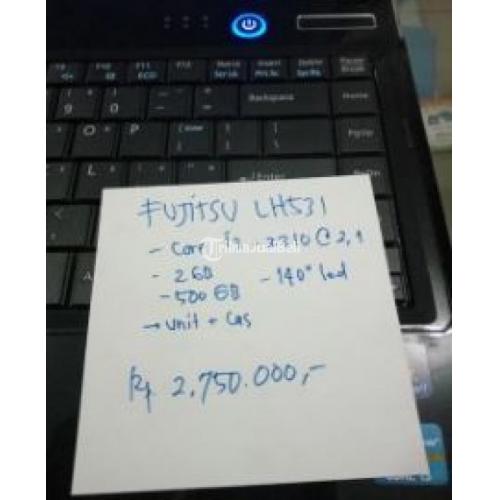 F9
F10
F11
ECO
F12
Insert
PrtSc
Delete
SysRq
Pause
Break
Backspace
Home
9
0
O
P
PgUp
L
Enter
FUJITSU LH531
- Core i3 - 2310 @ 2,1
- 2 GB - 14,0" led
- 500 GB
→ Unit + Cas
Rp 2.750.000,-